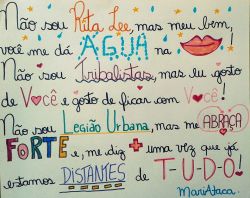 Não sou Rita Lee, mas meu bem,
você me dá ÁGUA na
Não sou Tribalistas, mas eu gosto
de Você e gosto de ficar com Você!
Não sou Legião Urbana, mas me ABRAÇA
FORTE e, me diz + uma vez que já
estamos DISTANTES de T-U-D-O.
MariAtaca.